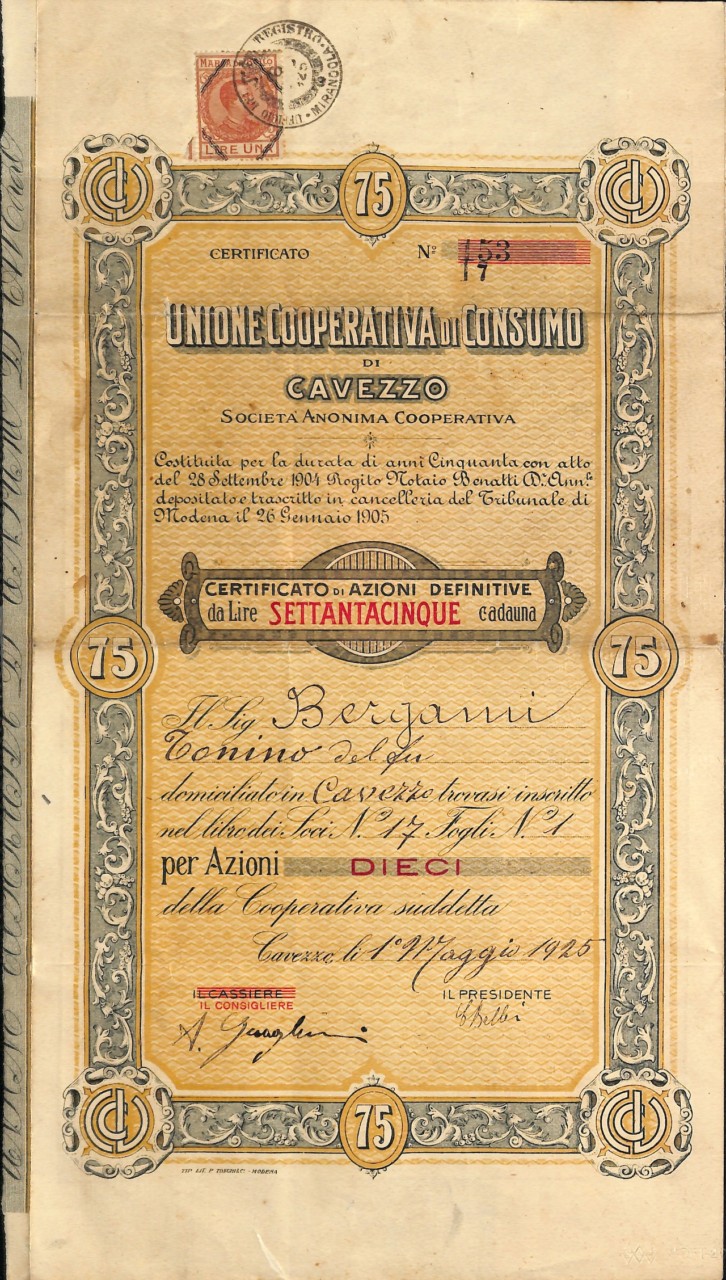 MARCA DA BOLLO
LIRE UNA
UFFICIO DEL REGISTRO • MIRANDOLA
75
CERTIFICATO Nº 153
17
UNIONE COOPERATIVA DI CONSUMO
DI
CAVEZZO
SOCIETÀ ANONIMA COOPERATIVA
Costituita per la durata di anni Cinquanta con atto
del 28 Settembre 1904 Rogito Notaio Benatti Dr. Ann.le
depositato e trascritto in cancelleria del Tribunale di
Modena il 26 Gennaio 1905
CERTIFICATO DI AZIONI DEFINITIVE
da Lire SETTANTACINQUE cadauna
75 75
Il Sig Bergami
Tonino del fu
domiciliato in Cavezzo trovasi inscritto
nel libro dei Soci N.º 17 Fogli. N.º 1
per Azioni DIECI
della Cooperativa suddetta
Cavezzo, li 1º Maggio 1925
IL CASSIERE IL PRESIDENTE
IL CONSIGLIERE
75